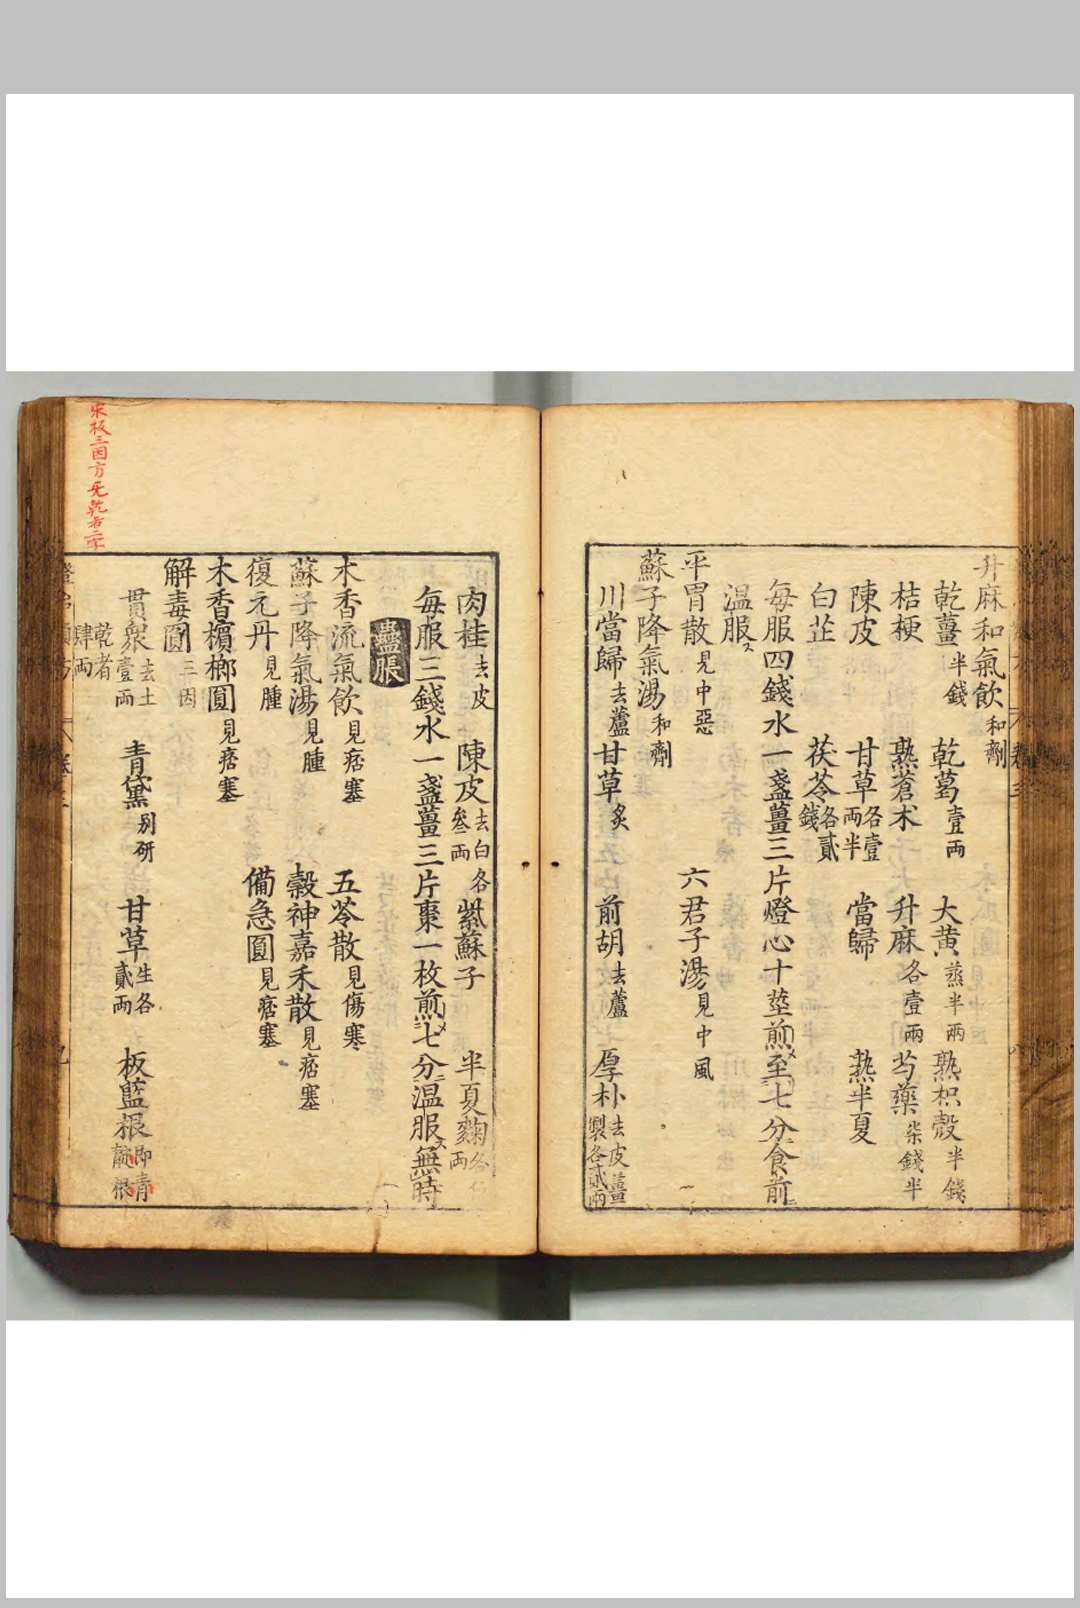 升麻和氣飲和劑
乾薑半錢 乾葛壹兩 大黄蒸半兩 熟枳殼半錢
桔梗 熟蒼术 升麻各壹兩 芍藥柒錢半
陳皮 甘草各壹兩半 當歸 熟半夏
白芷 茯苓各貳錢
每服四錢水一盞薑三片燈心十莖煎至七分食前
温服
平胃散見中惡 六君子湯見中風
蘇子降氣湯和劑
川當歸去蘆 甘草炙 前胡去蘆 厚朴去皮薑製各貳兩
肉桂去皮 陳皮去白各叁兩 紫蘇子 半夏麴各 兩
每服三錢水一盞薑三片棗一枚煎七分温服無時
蠱脹
木香流氣飲見痞塞 五苓散見傷寒
蘇子降氣湯見腫 穀神嘉禾散見痞塞
復元丹見腫 備急圓見痞塞
木香檳榔圓見痞塞
解毒圓三因
貫衆去土壹兩 青黛别研 甘草生各貳兩 板藍根即青靛根
乾者肆兩
宋板三因方無乾者二字